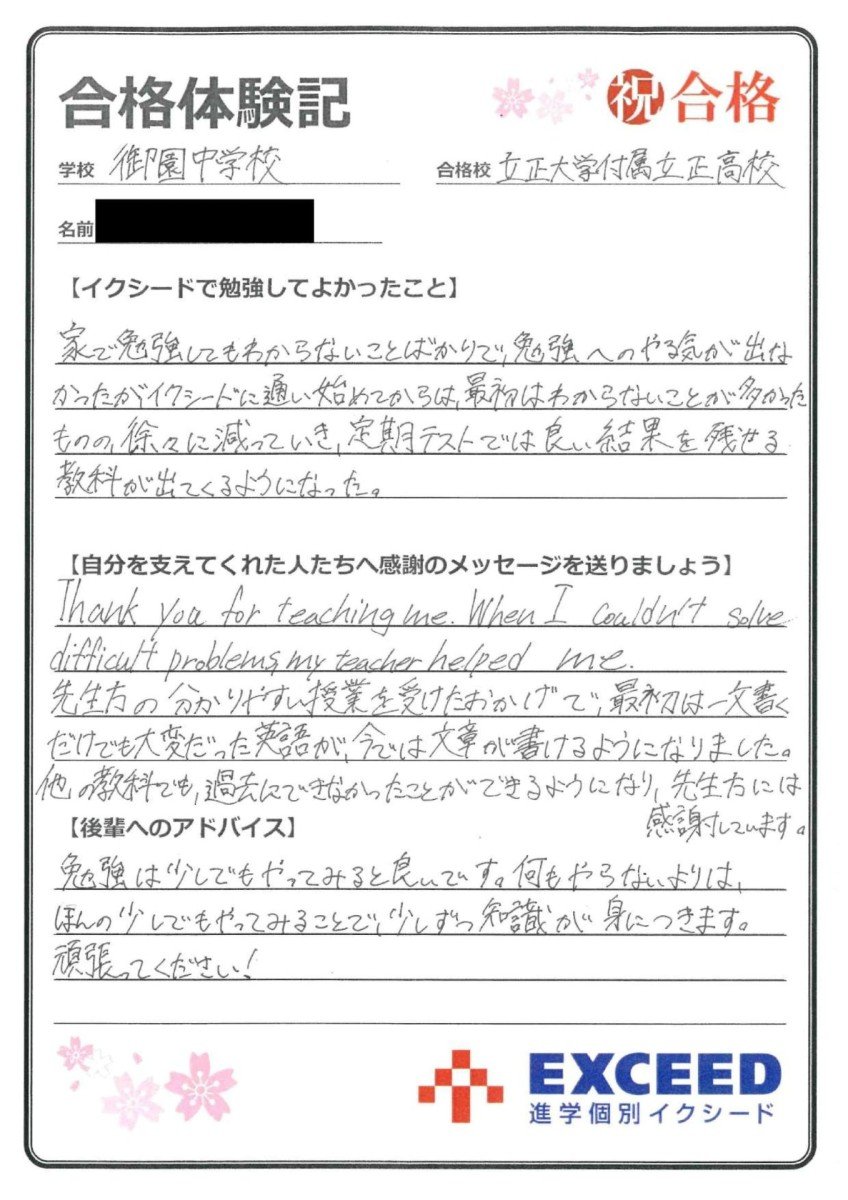 合格体験記
祝 合格
学校 御園中学校
合格校 立正大学付属立正高校
名前
【イクシードで勉強してよかったこと】
家で勉強してもわからないことばかりで、勉強へのやる気が出な
かったがイクシードに通い始めてからは、最初はわからないことが多かった
ものの、徐々に減っていき、定期テストでは良い結果を残せる
教科が出てくるようになった。
【自分を支えてくれた人たちへ感謝のメッセージを送りましょう】
Thank you for teaching me. When I couldn't solve
difficult problems, my teacher helped me.
先生方の分かりやすい授業を受けたおかげで、最初は一文書く
だけでも大変だった英語が、今では文章が書けるようになりました。
他の教科でも、過去にできなかったことができるようになり、先生方には
感謝しています。
【後輩へのアドバイス】
勉強は少しでもやってみると良いです。何もやらないよりは、
ほんの少しでもやってみることで、少しずつ知識が身につきます。
頑張ってください!
EXCEED
進学個別イクシード